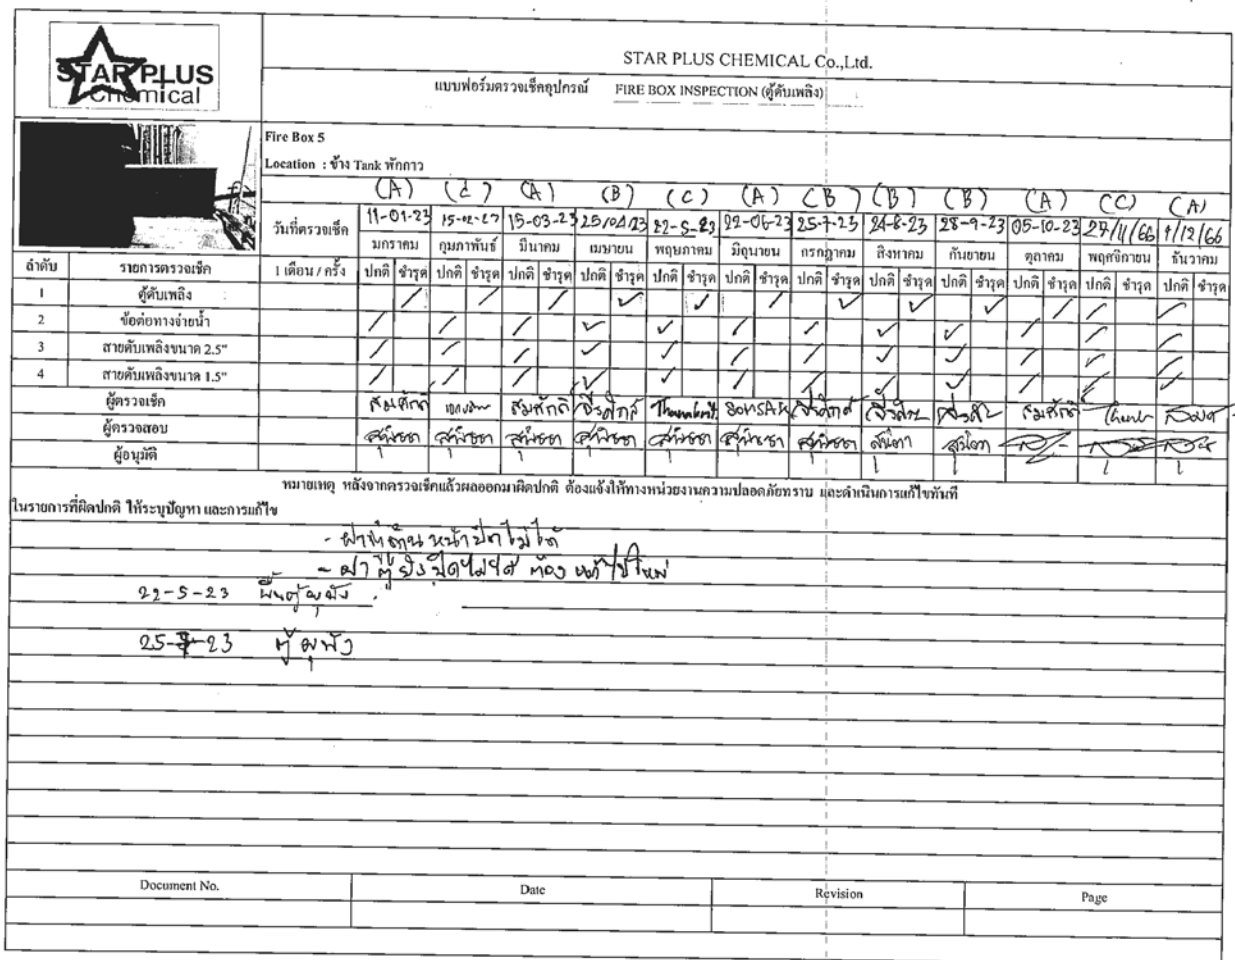 STAR PLUS
Chemical
STAR PLUS CHEMICAL Co.,Ltd.
แบบฟอร์มตรวจเช็คอุปกรณ์ FIRE BOX INSPECTION (ตู้ดับเพลิง)
Fire Box 5
Location : ข้าง Tank พักกาว
(A) (C) (A) (B) (C) (A) (B) (B) (B) (A) (C) (A)
วันที่ตรวจเช็ค 11-01-23 15-02-23 15-03-23 25/04/23 22-5-23 22-06-23 25-7-23 24-8-23 28-9-23 05-10-23 27/11/66 1/12/66
มกราคม กุมภาพันธ์ มีนาคม เมษายน พฤษภาคม มิถุนายน กรกฎาคม สิงหาคม กันยายน ตุลาคม พฤศจิกายน ธันวาคม
ลำดับ รายการตรวจเช็ค 1 เดือน / ครั้ง ปกติ ชำรุด ปกติ ชำรุด ปกติ ชำรุด ปกติ ชำรุด ปกติ ชำรุด ปกติ ชำรุด ปกติ ชำรุด ปกติ ชำรุด ปกติ ชำรุด ปกติ ชำรุด ปกติ ชำรุด ปกติ ชำรุด
1 ตู้ดับเพลิง
2 ข้อต่อทางจ่ายน้ำ
3 สายดับเพลิงขนาด 2.5"
4 สายดับเพลิงขนาด 1.5"
ผู้ตรวจเช็ค สมศักดิ์ สมศักดิ์ สมศักดิ์
ผู้ตรวจสอบ
ผู้อนุมัติ
หมายเหตุ หลังจากตรวจเช็คแล้วผลออกมาผิดปกติ ต้องแจ้งให้ทางหน่วยงานความปลอดภัยทราบ และดำเนินการแก้ไขทันที
ในรายการที่ผิดปกติ ให้ระบุปัญหา และการแก้ไข
- ฝาตู้ด้านหน้าปิดไม่ได้
- ฝาตู้ยังปิดไม่ได้ ต้องแก้ไขใหม่
22-5-23 พื้นตู้ผุพัง
25-7-23 ตู้ผุพัง
Document No. Date Revision Page